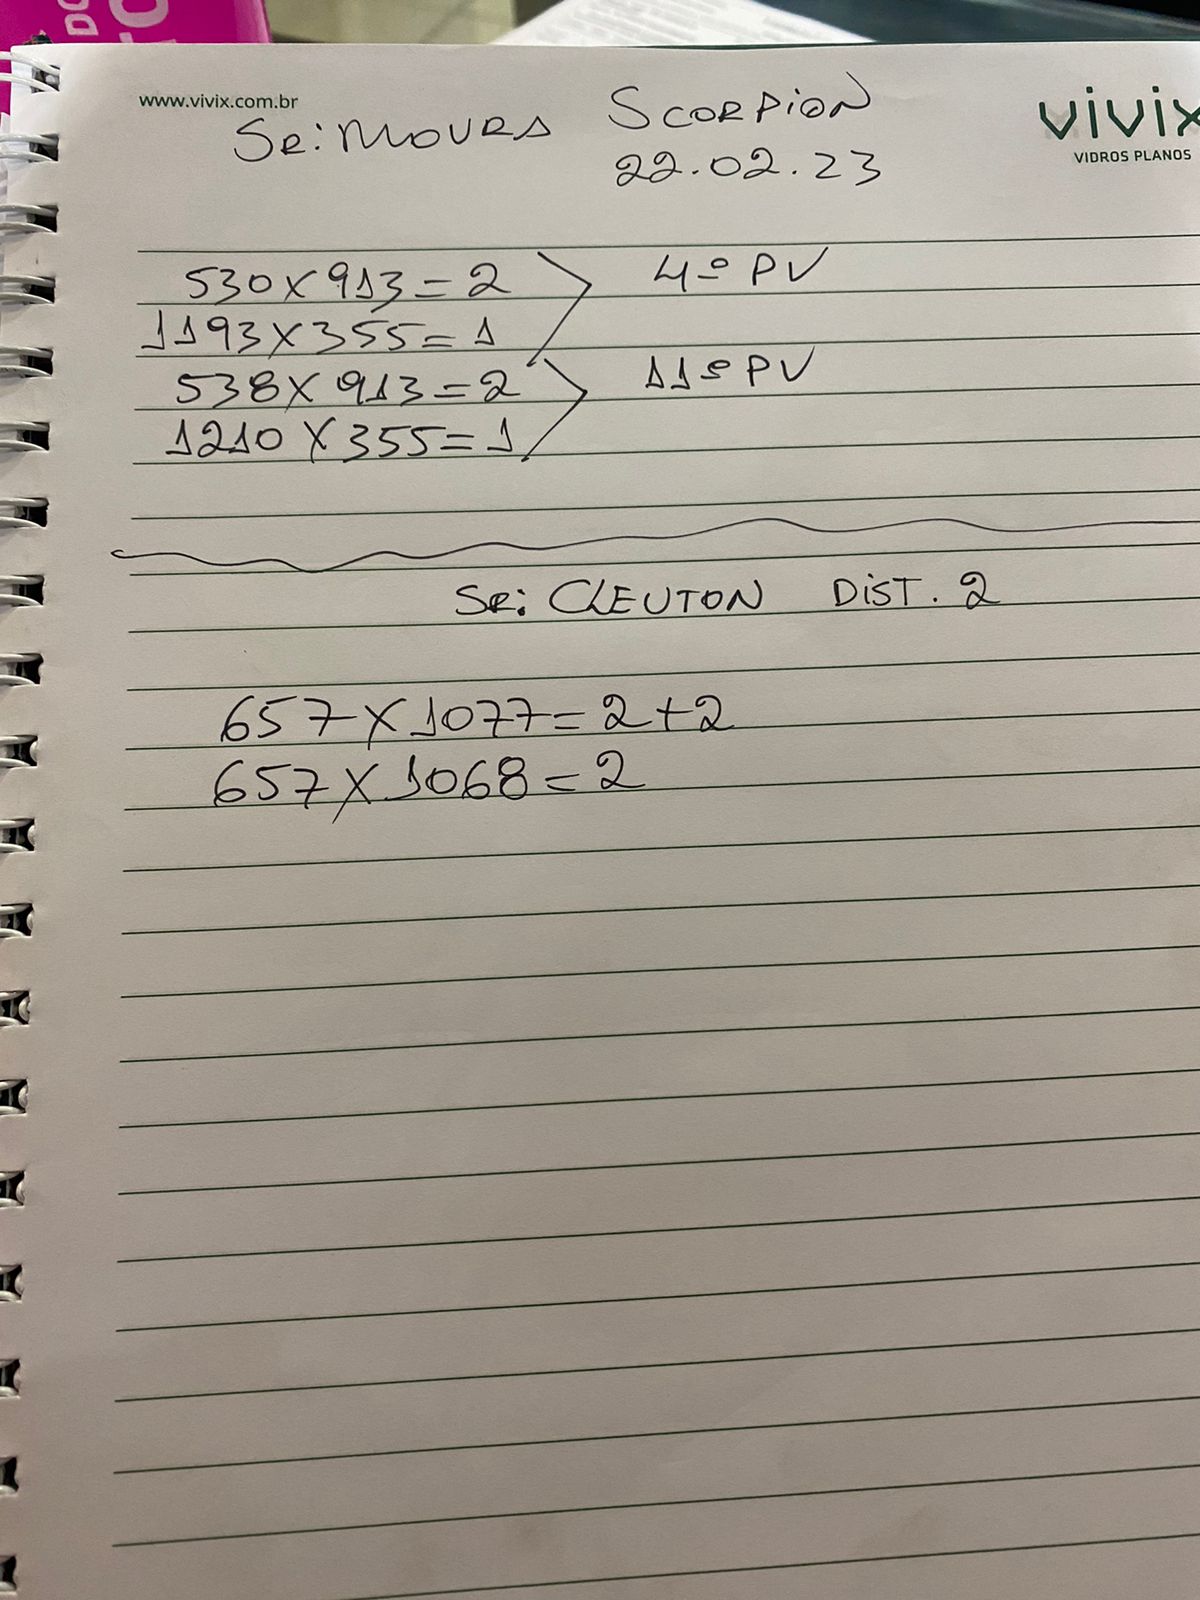 www.vivix.com.br
vivix
VIDROS PLANOS
Sr: MOURA SCORPION
22.02.23
530 X 913 = 2 4º PV
1193 X 355 = 1
538 X 913 = 2 11º PV
1210 X 355 = 1
Sr: CLEUTON DIST. 2
657 X 1077 = 2 + 2
657 X 1068 = 2